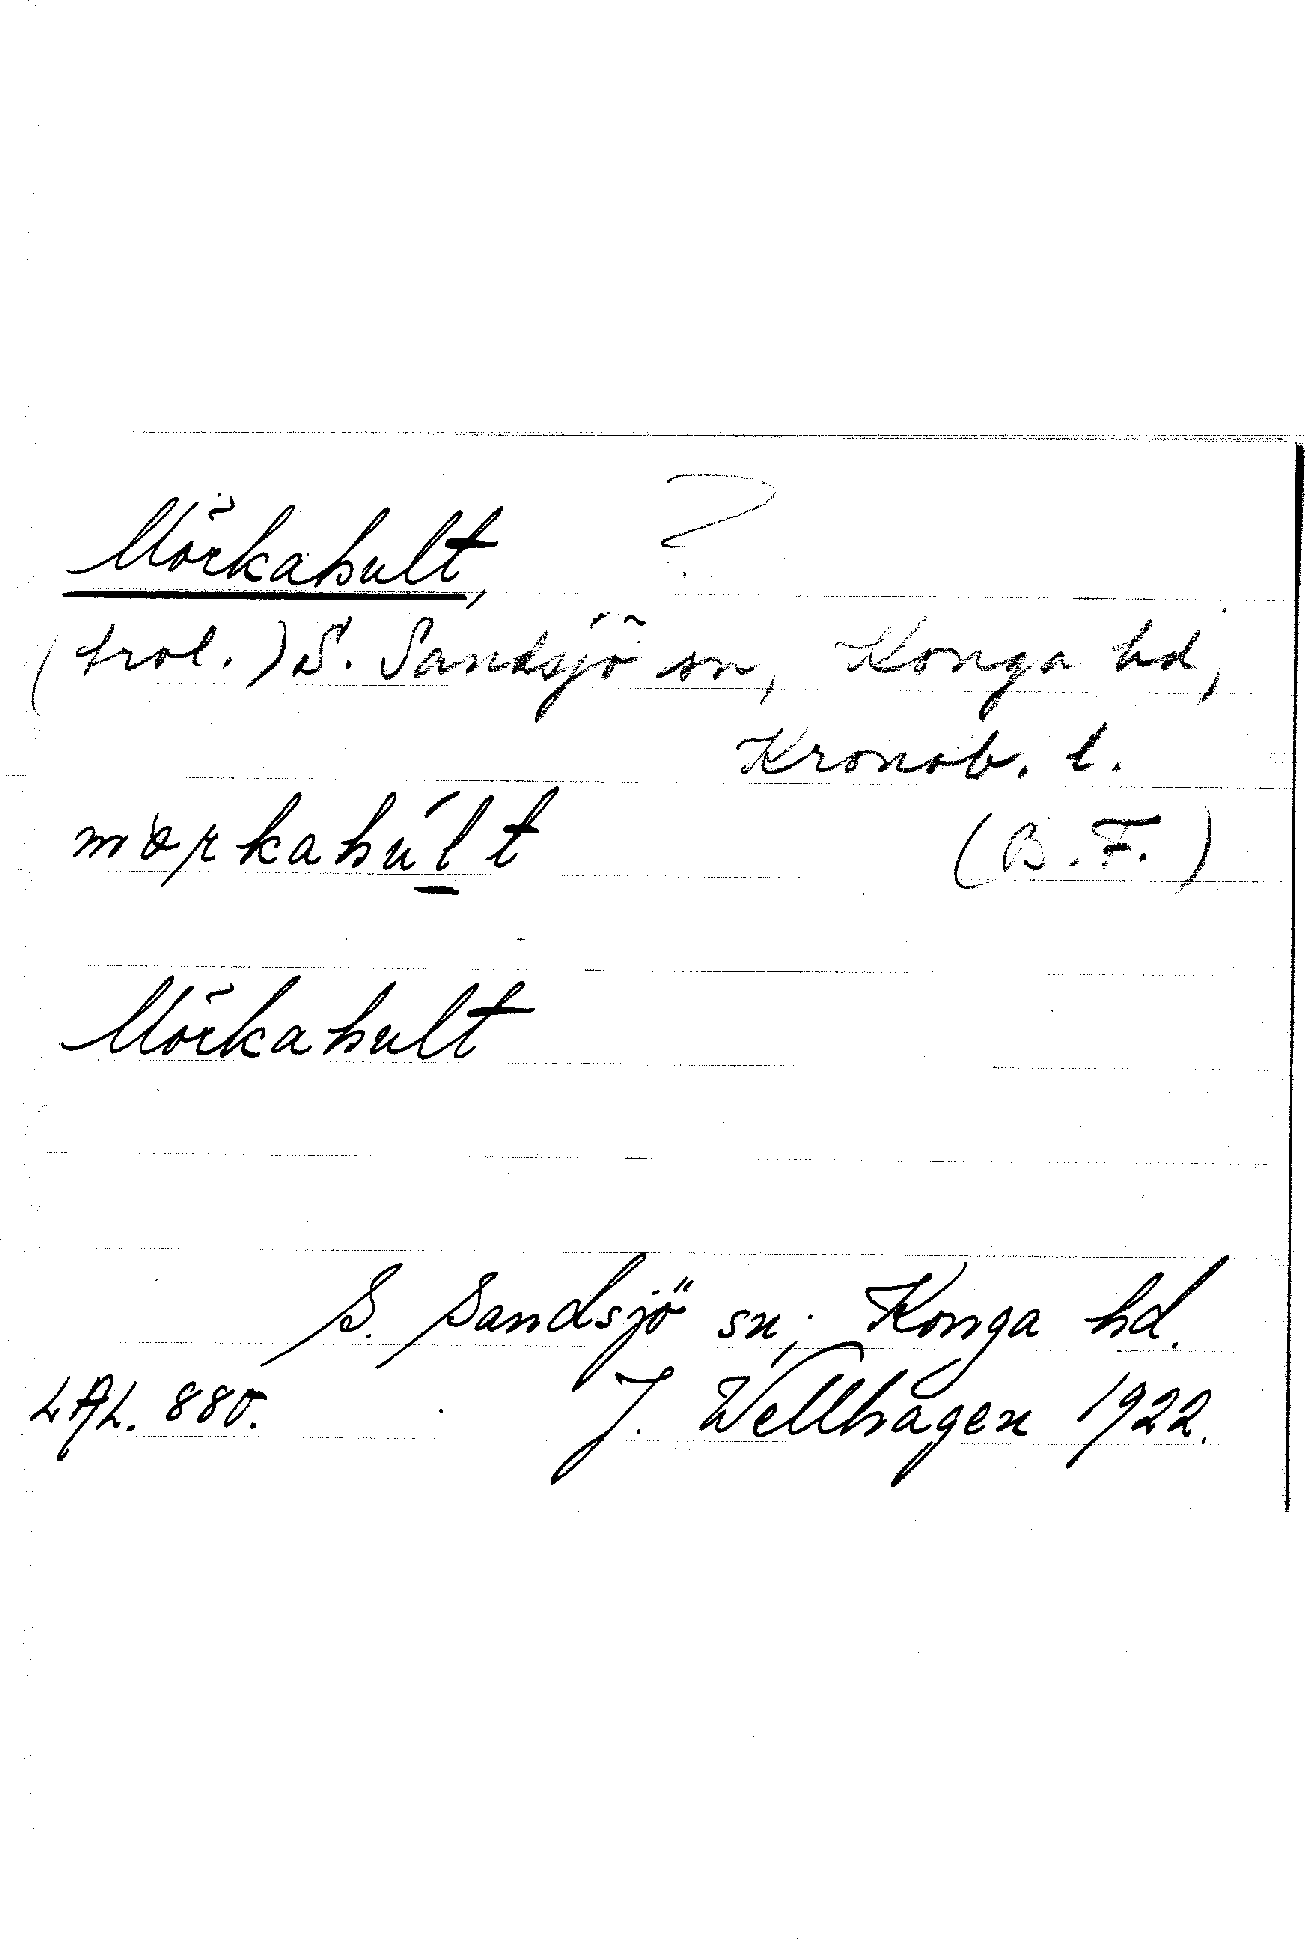 Mörkahult, ?
(trol.) S. Sandsjö sn, Konga hd,
Kronob. l.
mòrkahúlt (B.F.)
Mörkahult
S. Sandsjö sn, Konga hd.
LAL. 880. J. Wellhagen 1922.